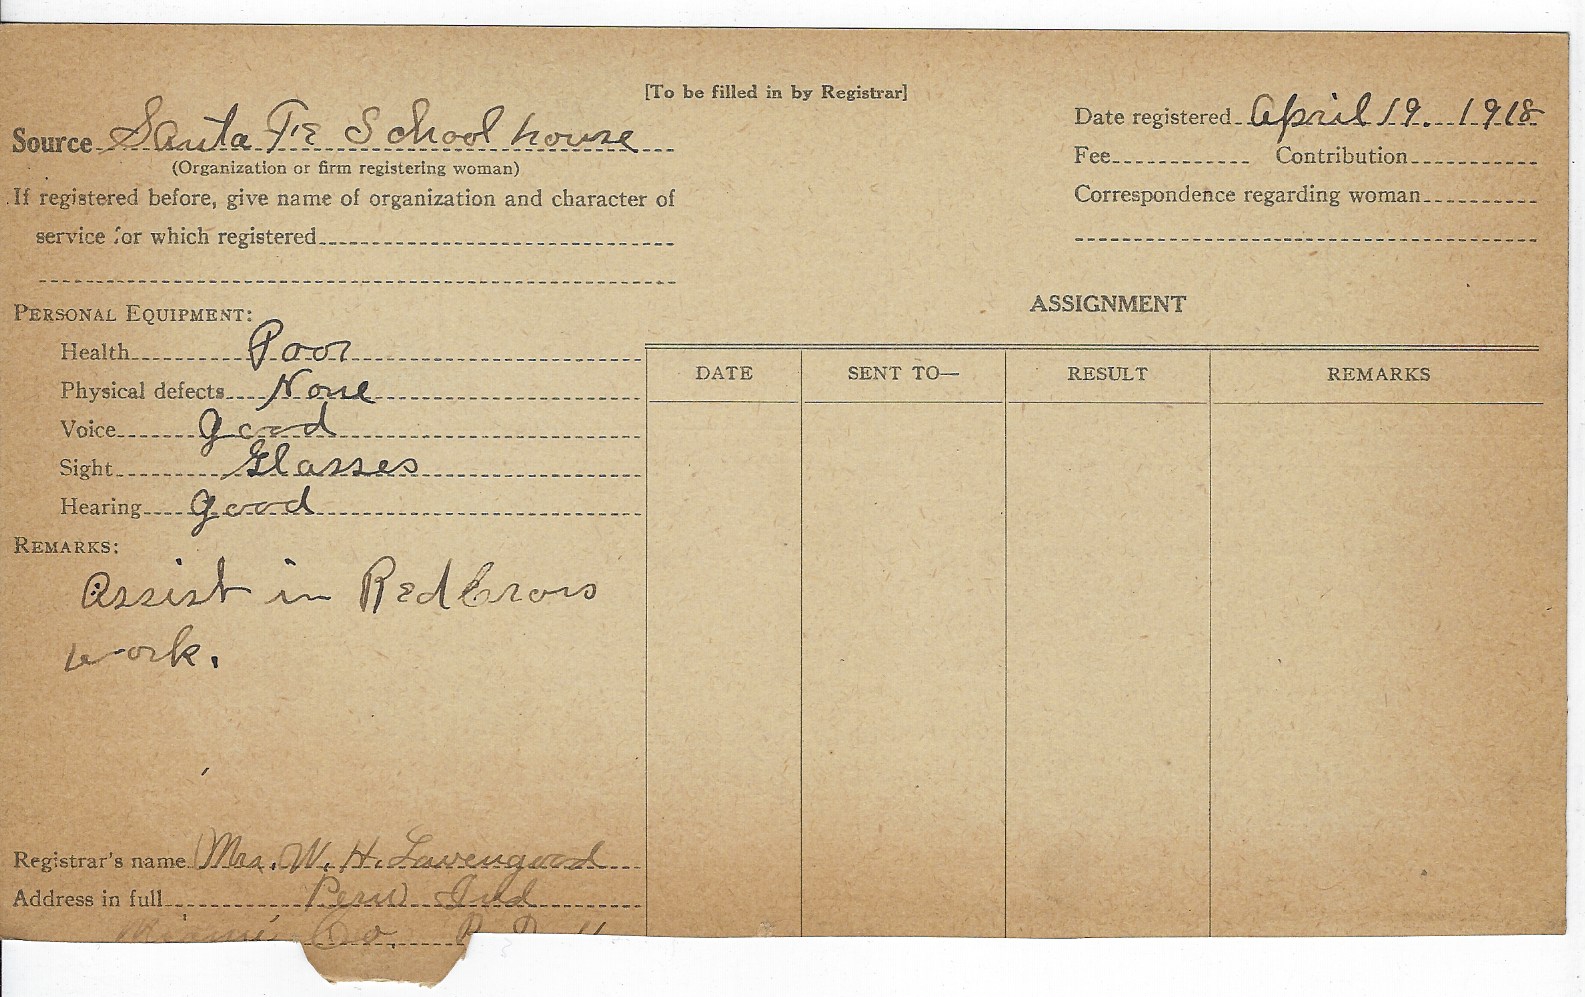 [To be filled in by Registrar]
Source Santa Fe School house
(Organization or firm registering woman)
If registered before, give name of organization and character of
service for which registered
Date registered April 19. 1918
Fee Contribution
Correspondence regarding woman
PERSONAL EQUIPMENT:
Health Poor
Physical defects None
Voice good
Sight Glasses
Hearing good
REMARKS:
Assist in Red Cross
work.
Registrar's name Mrs. W. H. Lavengood
Address in full Peru Ind
Miami Co. R.
ASSIGNMENT
DATE SENT TO— RESULT REMARKS